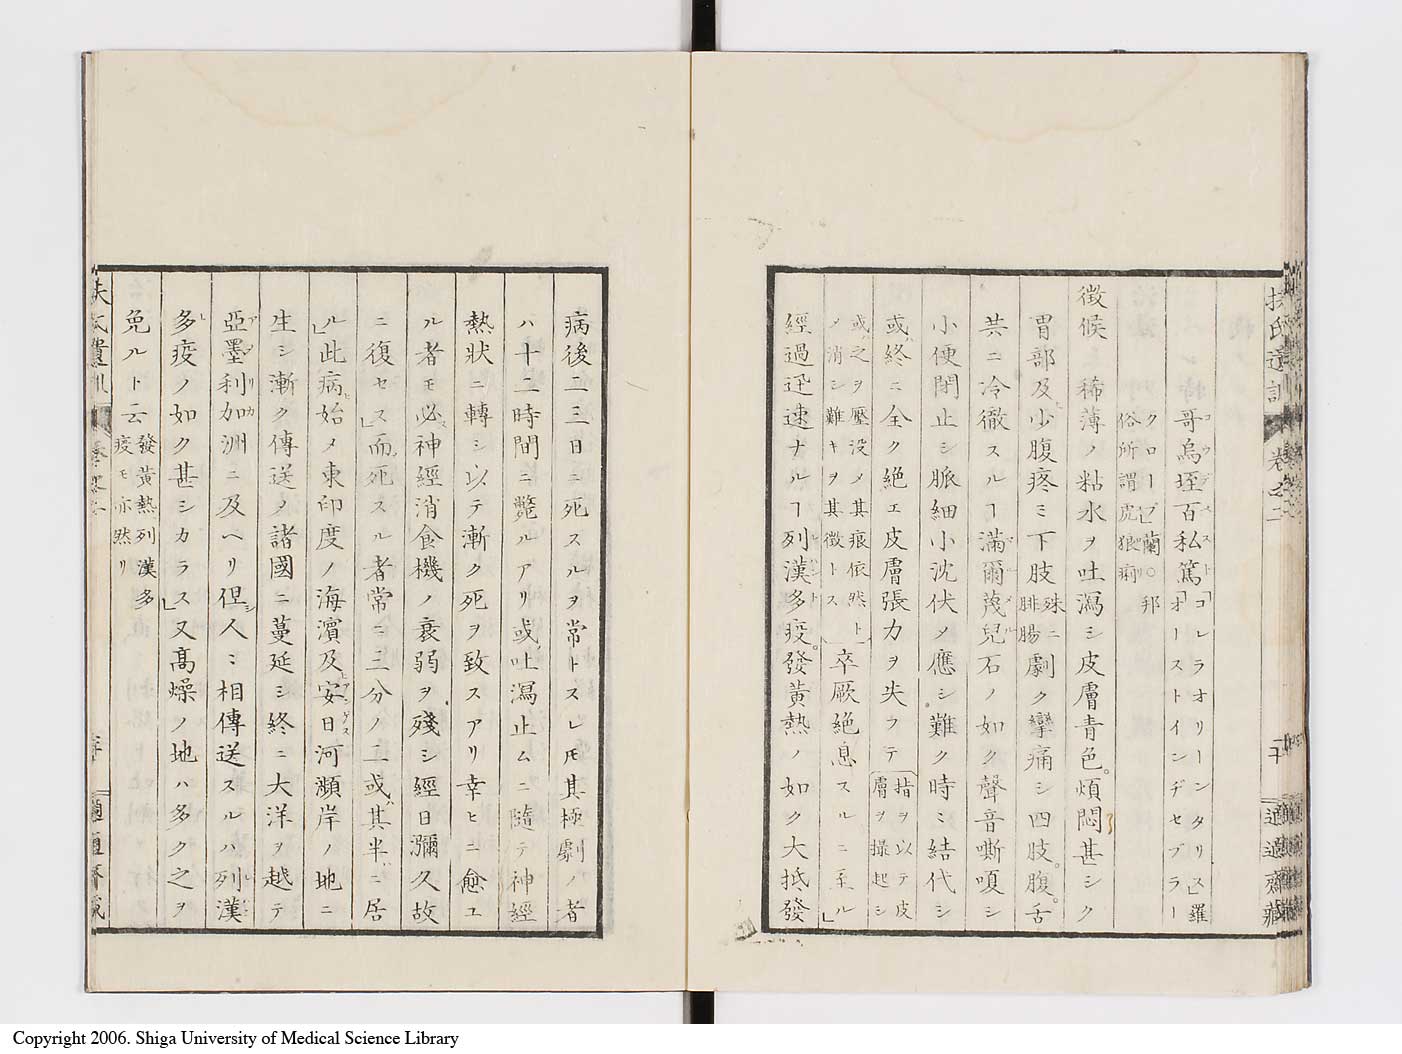 扶氏遺訓 卷之二 二十 適適齋藏
哥烏垤百私篤「コレラオリーンタリス」羅「オーストインヂセブラークロープ」蘭○邦俗所謂虎狼痢
徴候 稀薄ノ粘水ヲ吐瀉シ皮膚青色。煩悶甚シク
胃部及ヒ少腹疼ミ下肢殊ニ腓腸劇ク攣痛シ四肢。腹。舌
共ニ冷徹スルヿ滿爾蔑兒石ノ如ク聲音嘶嗄シ
小便閉止シ脈細小沈伏ノ應シ難ク時ミ結代シ
或ハ終ニ全ク絶エ皮膚張力ヲ失フテ指ヲ以テ皮膚ヲ撮起シ
或ハ之ヲ壓没メ其痕依然トメ消シ難キヲ其徴トス卒厥絶息スルニ至ル」
經過迅速ナルヿ列漢多疫。發黄熱ノ如ク大抵發
病後二三日ニ死スルヲ常トスレ𪜈其極劇ノ者
ハ十二時間ニ斃ルアリ或ハ吐瀉止ムニ隨テ神經
熱状ニ轉シ以テ漸ク死ヲ致スアリ幸ヒニ愈ユ
ル者モ必ス神經消食機ノ衰弱ヲ殘シ經日彌久故
ニ復セス」而死スル者常ニ三分ノ二或ハ其半ニ居
ル」此病始メ東印度ノ海濱及ヒ安日河瀕岸ノ地ニ
生シ漸ク傳送メ諸國ニ蔓延シ終ニ大洋ヲ越テ
亞墨利加洲ニ及ヘリ但シ人ミ相傳送スルハ列漢
多疫ノ如ク甚シカラス」又髙燥ノ地ハ多ク之ヲ
免ルト云發黄熱列漢多疫モ亦然リ